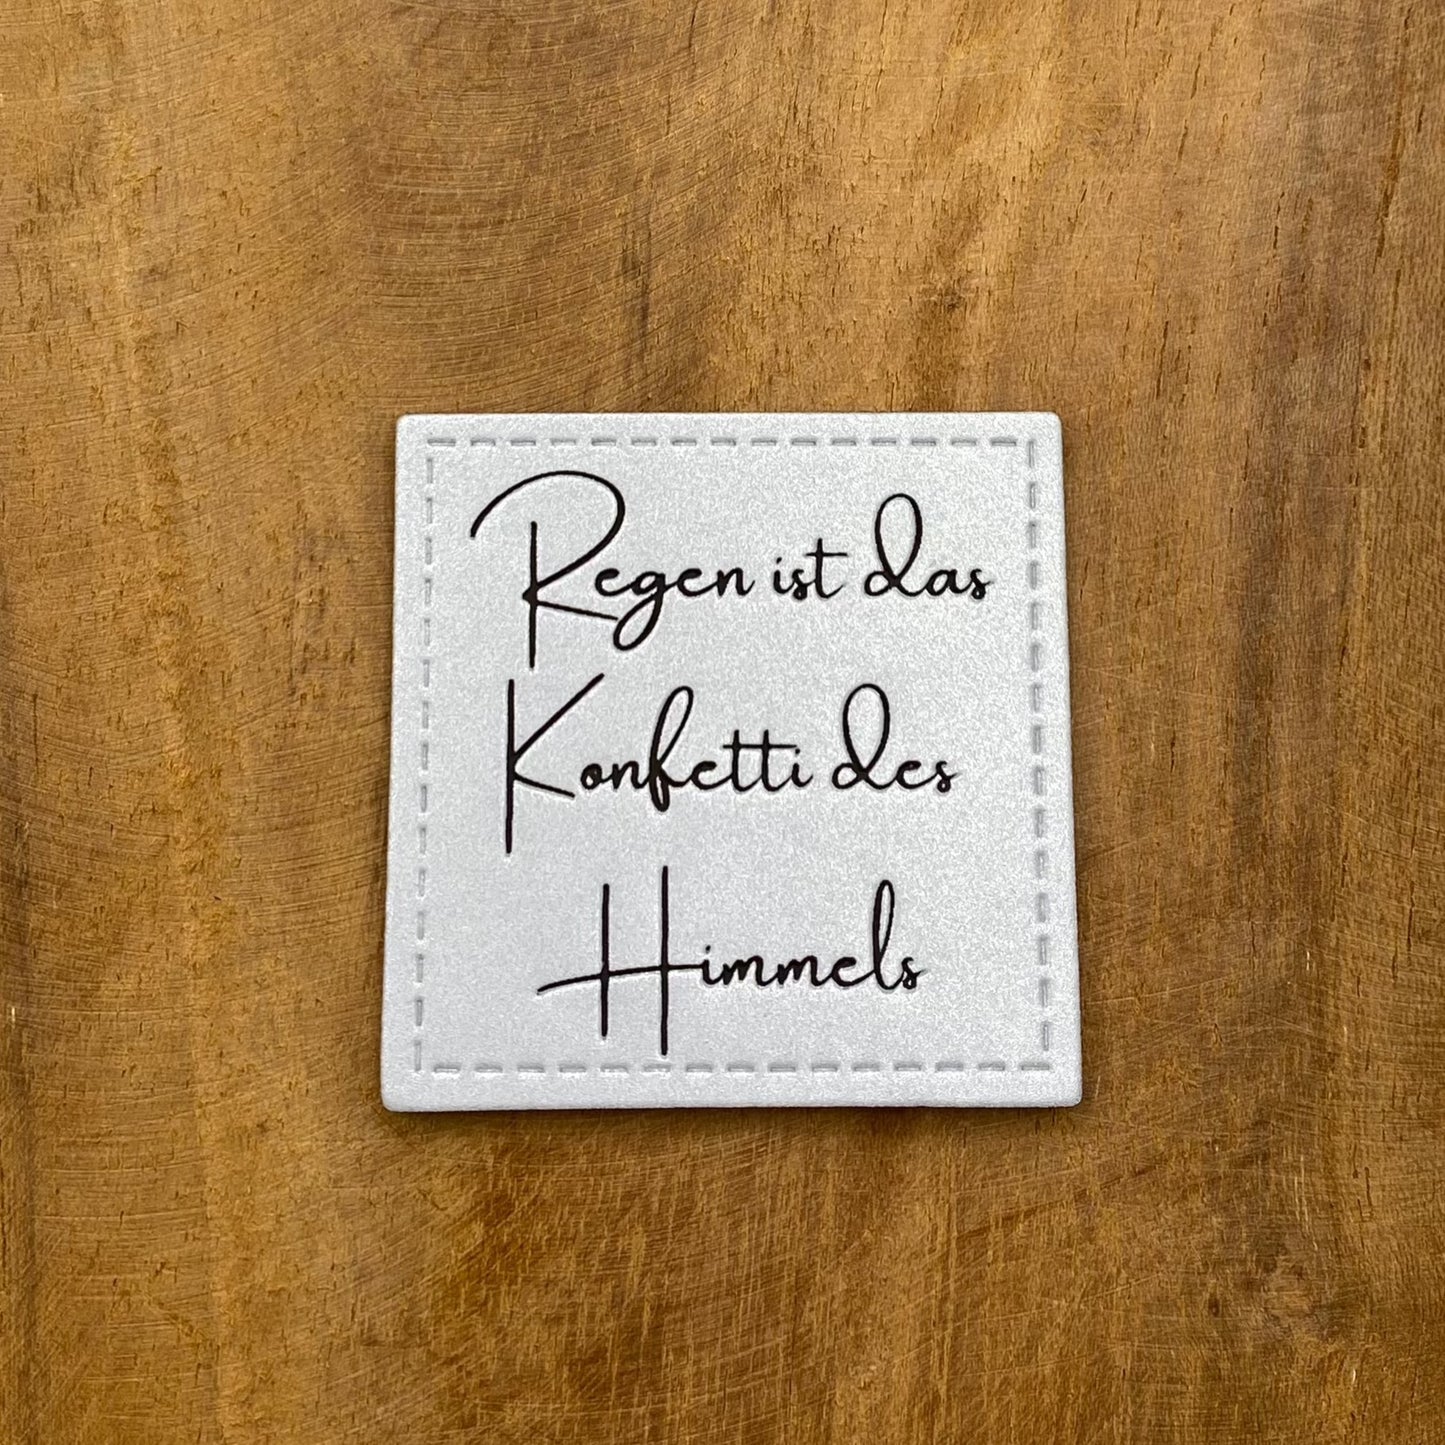 Regen ist das
Konfetti des
Himmels